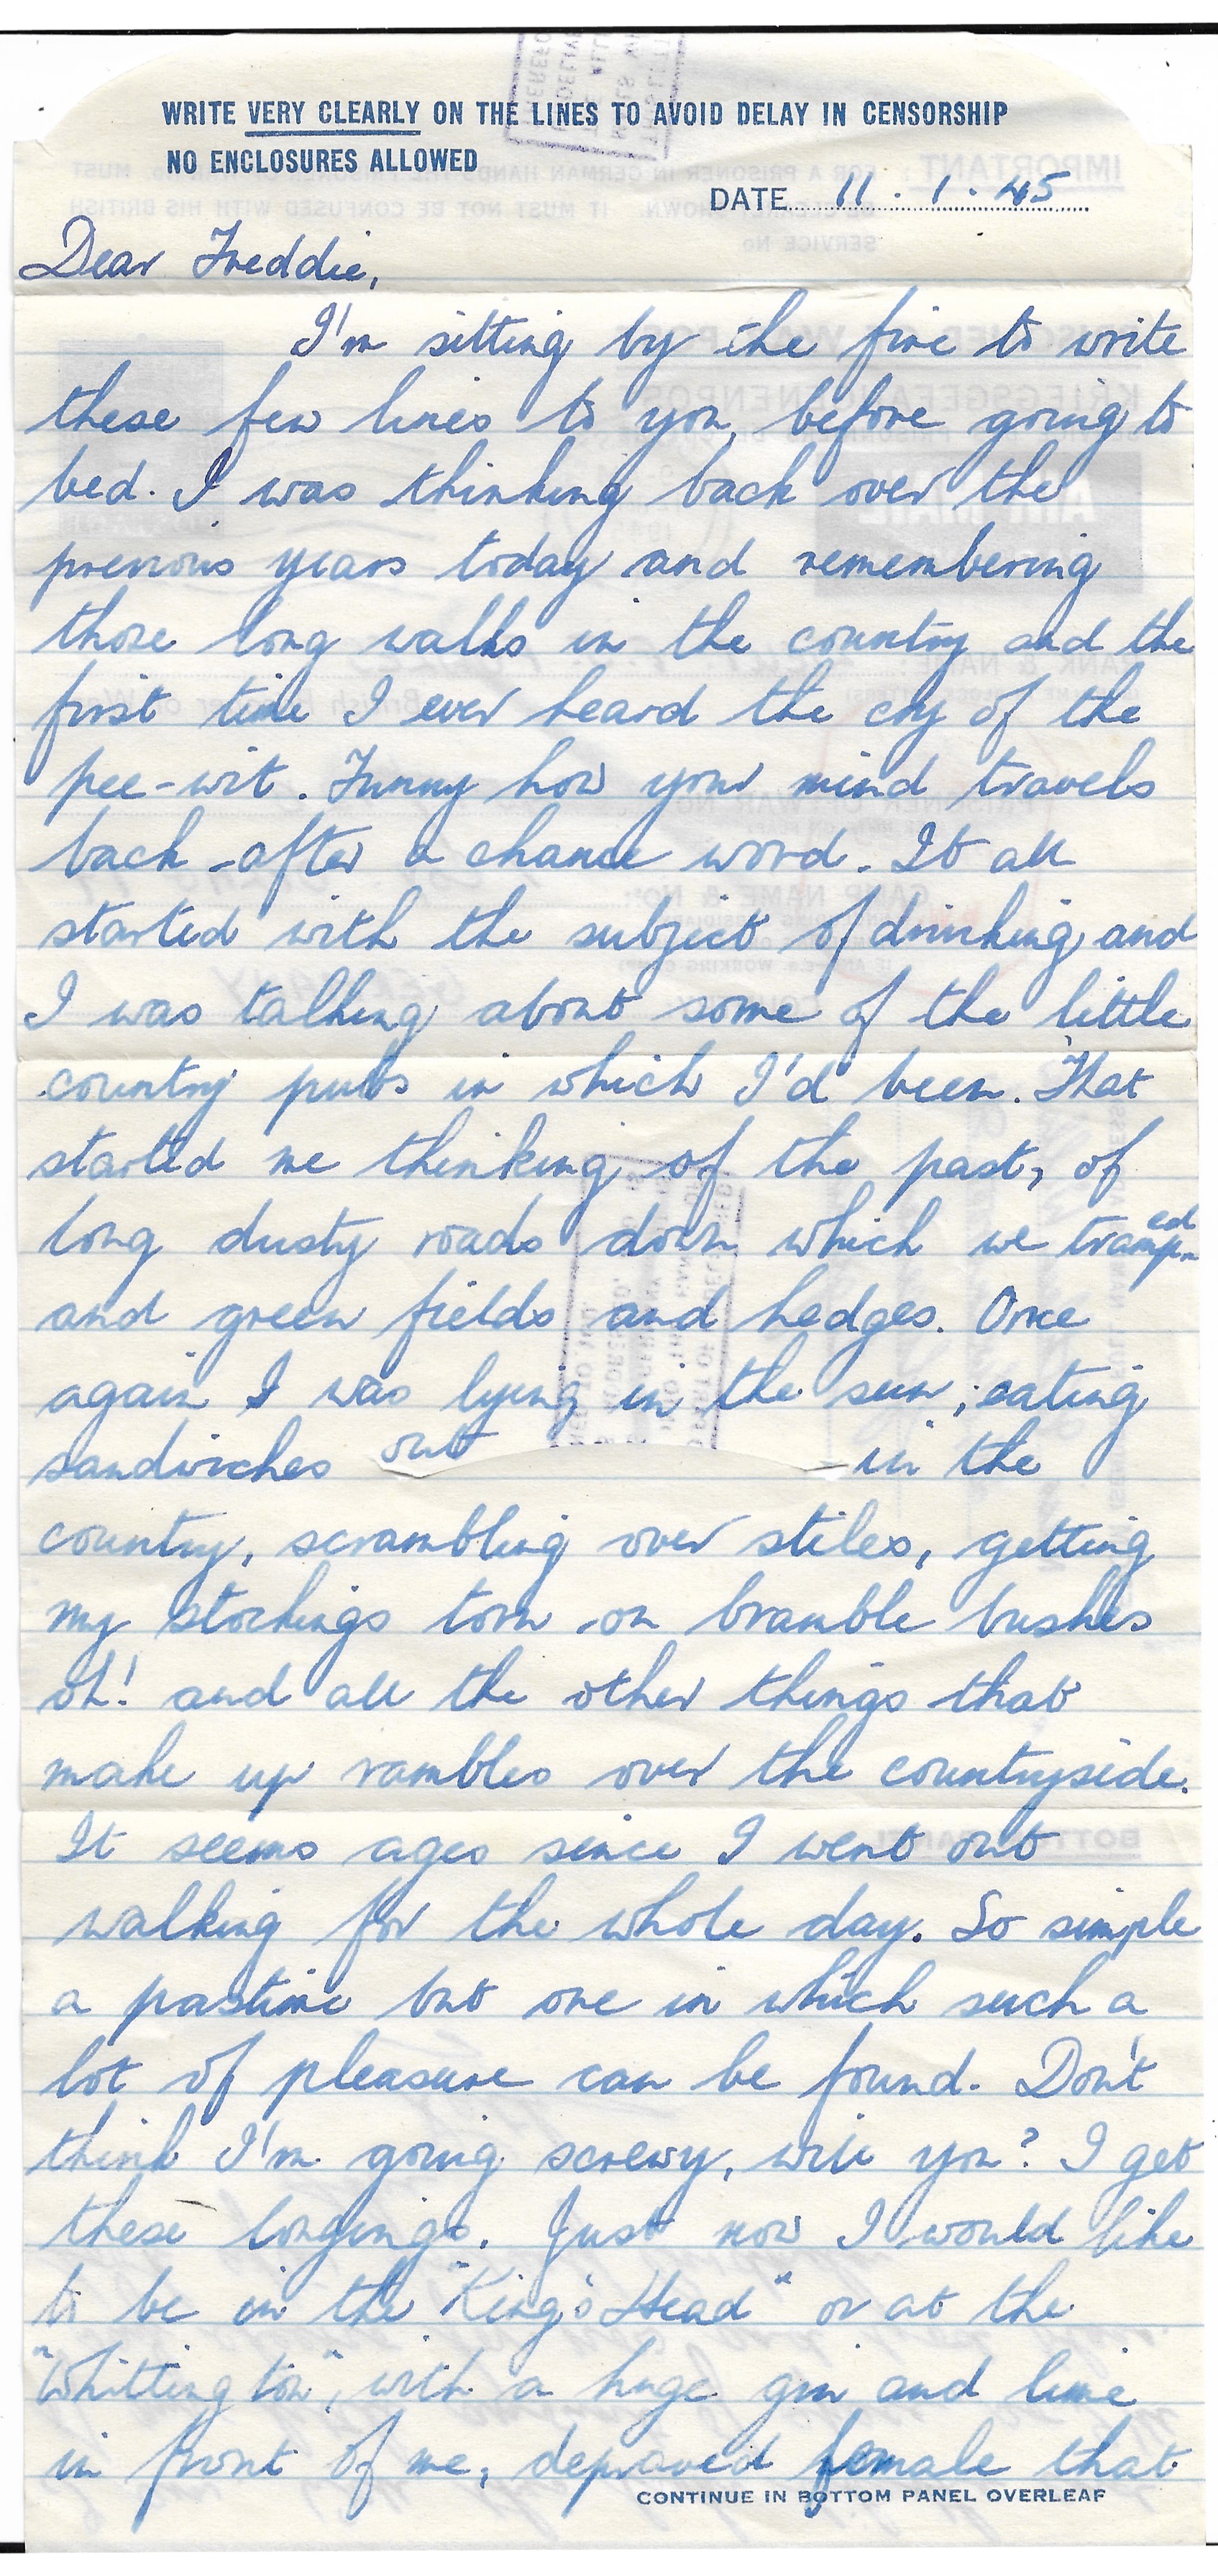 WRITE VERY CLEARLY ON THE LINES TO AVOID DELAY IN CENSORSHIP
NO ENCLOSURES ALLOWED
DATE 11.1.45
Dear Freddie,
I'm sitting by the fire to write
these few lines to you, before going to
bed. I was thinking back over the
previous years today and remembering
those long walks in the country and the
first time I ever heard the cry of the
pee-wit. Funny how your mind travels
back after a chance word. It all
started with the subject of drinking and
I was talking about some of the little
country pubs in which I'd been. That
started me thinking of the past, of
long dusty roads down which we tramped
and green fields and hedges. Once
again I was lying in the sun, eating
sandwiches out in the
country, scrambling over stiles, getting
my stockings torn on bramble bushes
oh! and all the other things that
make up rambles over the countryside.
It seems ages since I went out
walking for the whole day. So simple
a pastime but one in which such a
lot of pleasure can be found. Don't
think I'm going screwy, will you? I get
these longings. Just now I would like
to be in the "King's Head" or at the
"Whittington", with a huge gin and lime
in front of me, depraved female that
CONTINUE IN BOTTOM PANEL OVERLEAF